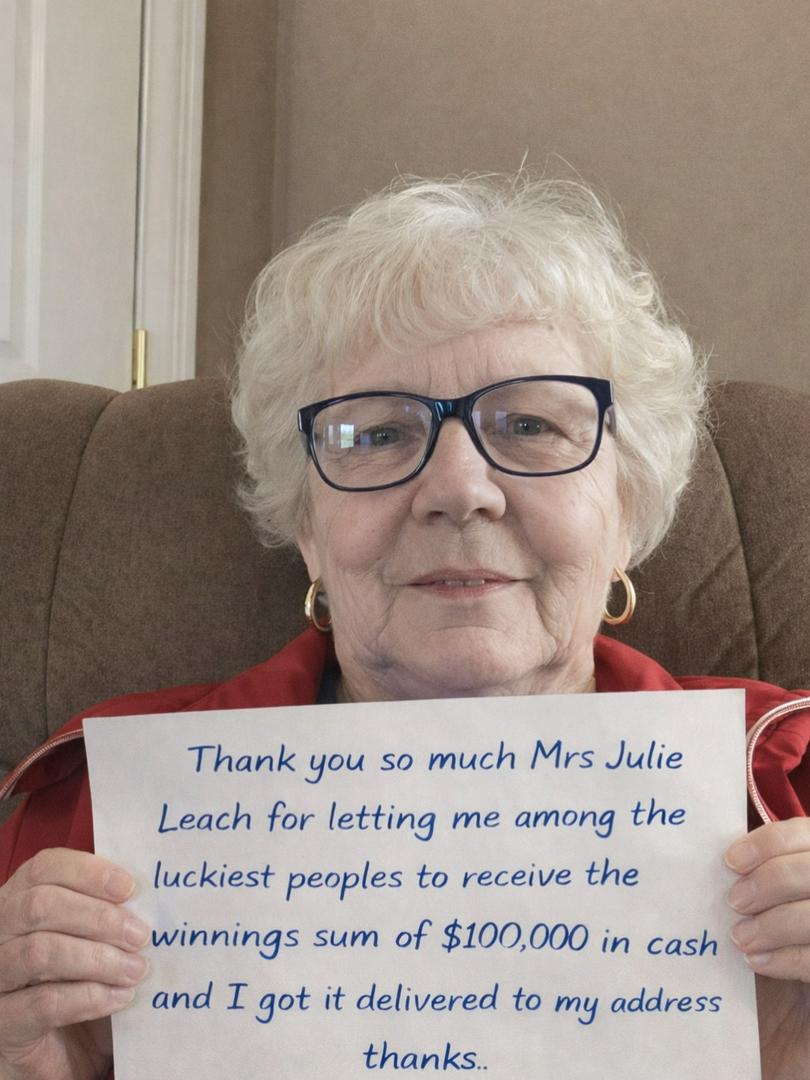 Thank you so much Mrs Julie
Leach for letting me among the
luckiest peoples to receive the
winnings sum of $100,000 in cash
and I got it delivered to my address
thanks..